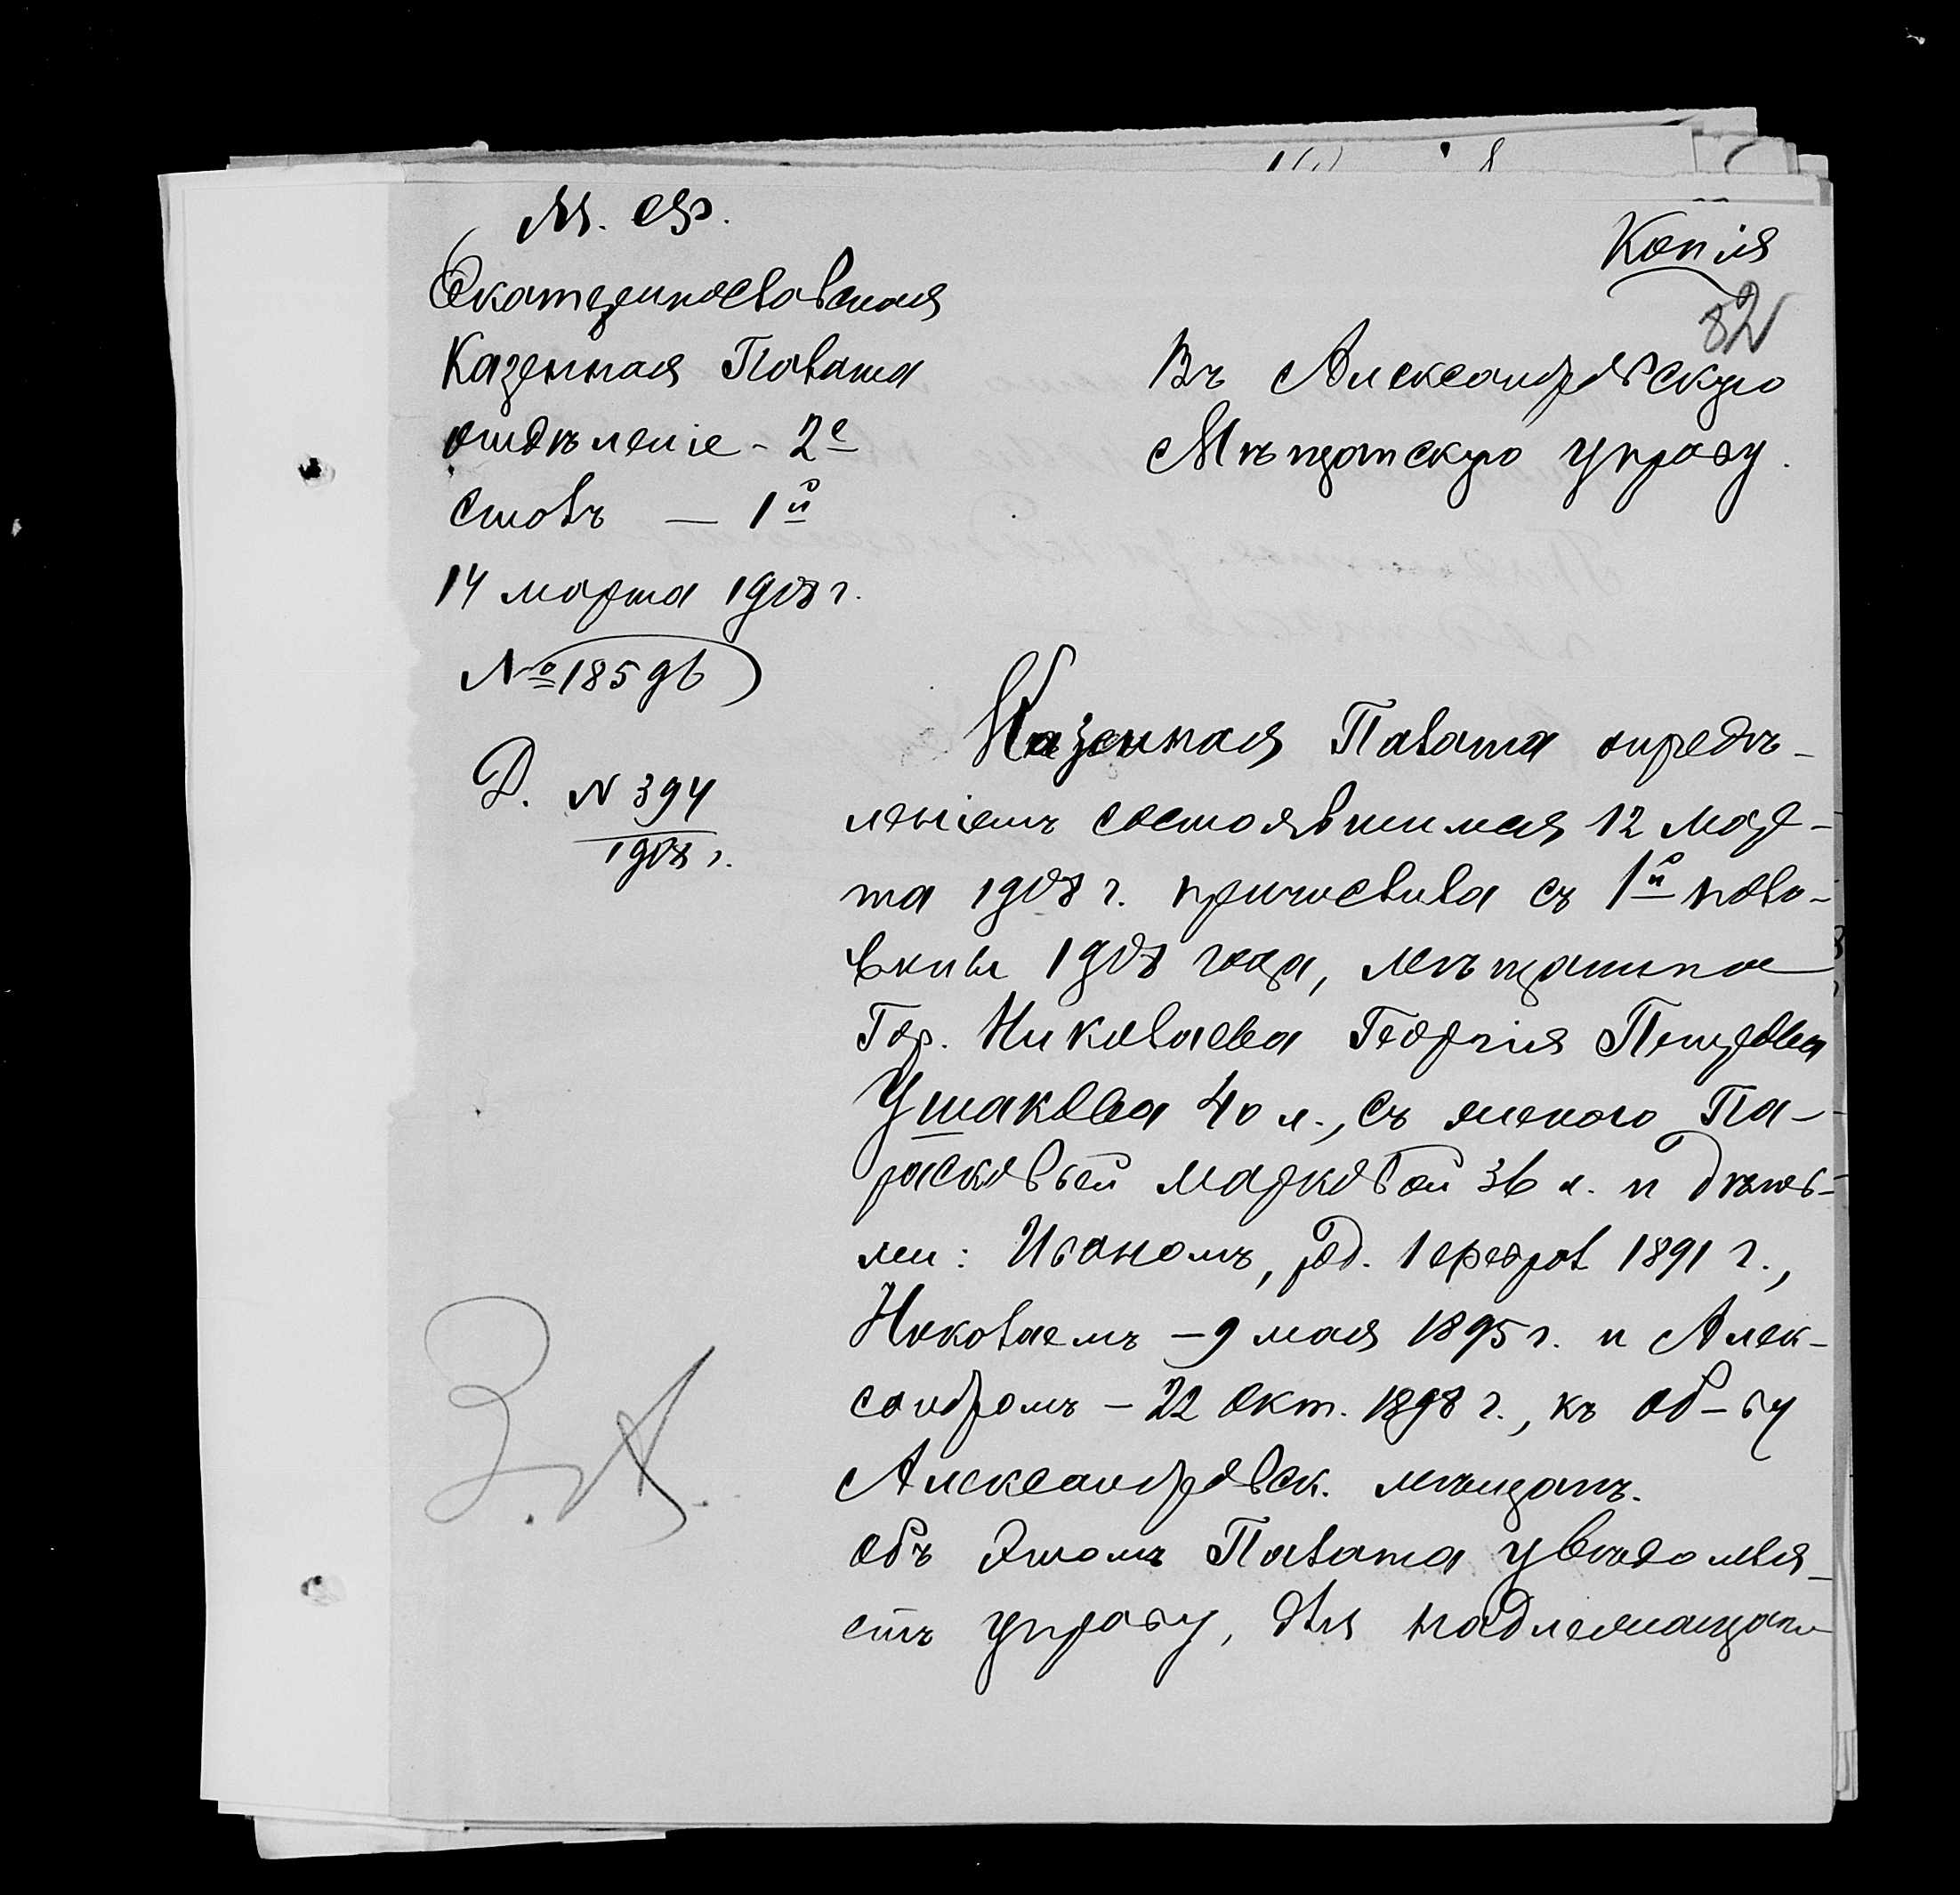 М. Ф.
Екатеринославская
Казенная Палата
отдѣленіе - 2е
столъ — 1й
14 марта 1908 г.
№ 18596
Д. N 394
1908 г.
Копія
82
Въ Александровскую
Мѣщанскую управу.
Казенная Палата опредѣ-
леніемъ состоявшимся 12 мар-
та 1908 г. причислила съ 1й поло-
вины 1908 года, мѣщанина
Гор. Николаева Георгія Петрова
Ушакова 40 л., съ женою Па-
расковьей Марковой 36 л. и дѣть-
ми: Иваномъ, род. 1 февраля 1891 г.,
Николаемъ — 9 мая 1895 г. и Алек-
сандромъ — 22 окт. 1898 г., къ об-ву
Александровск. мѣщанъ.
Объ этомъ Палата увѣдомля-
етъ управу, для надлежащаго
З. А.